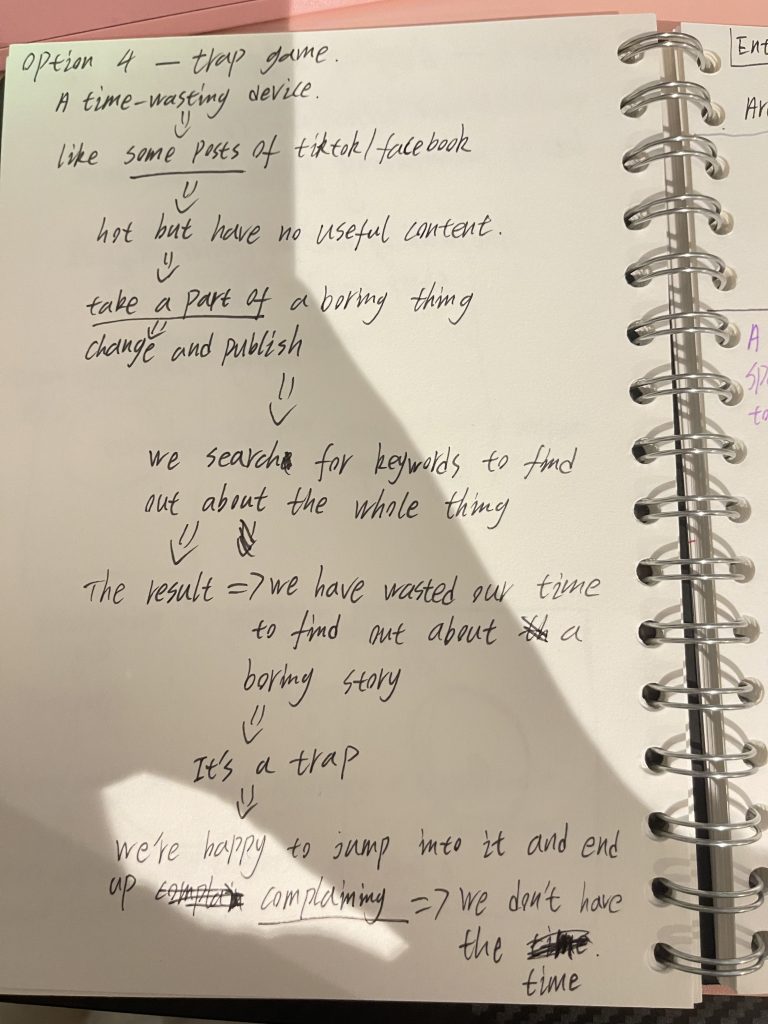 Option 4 — trap game.
A time-wasting device.
⇓
like some posts of tiktok/facebook
⇓
hot but have no useful content.
⇓
take a part of a boring thing
⇓
change and publish
⇓
we search for keywords to find
out about the whole thing
⇓
The result => we have wasted our time
to find out about a
boring story
⇓
It's a trap
⇓
we're happy to jump into it and end
up complaining => we don't have
the
time
Ent
A